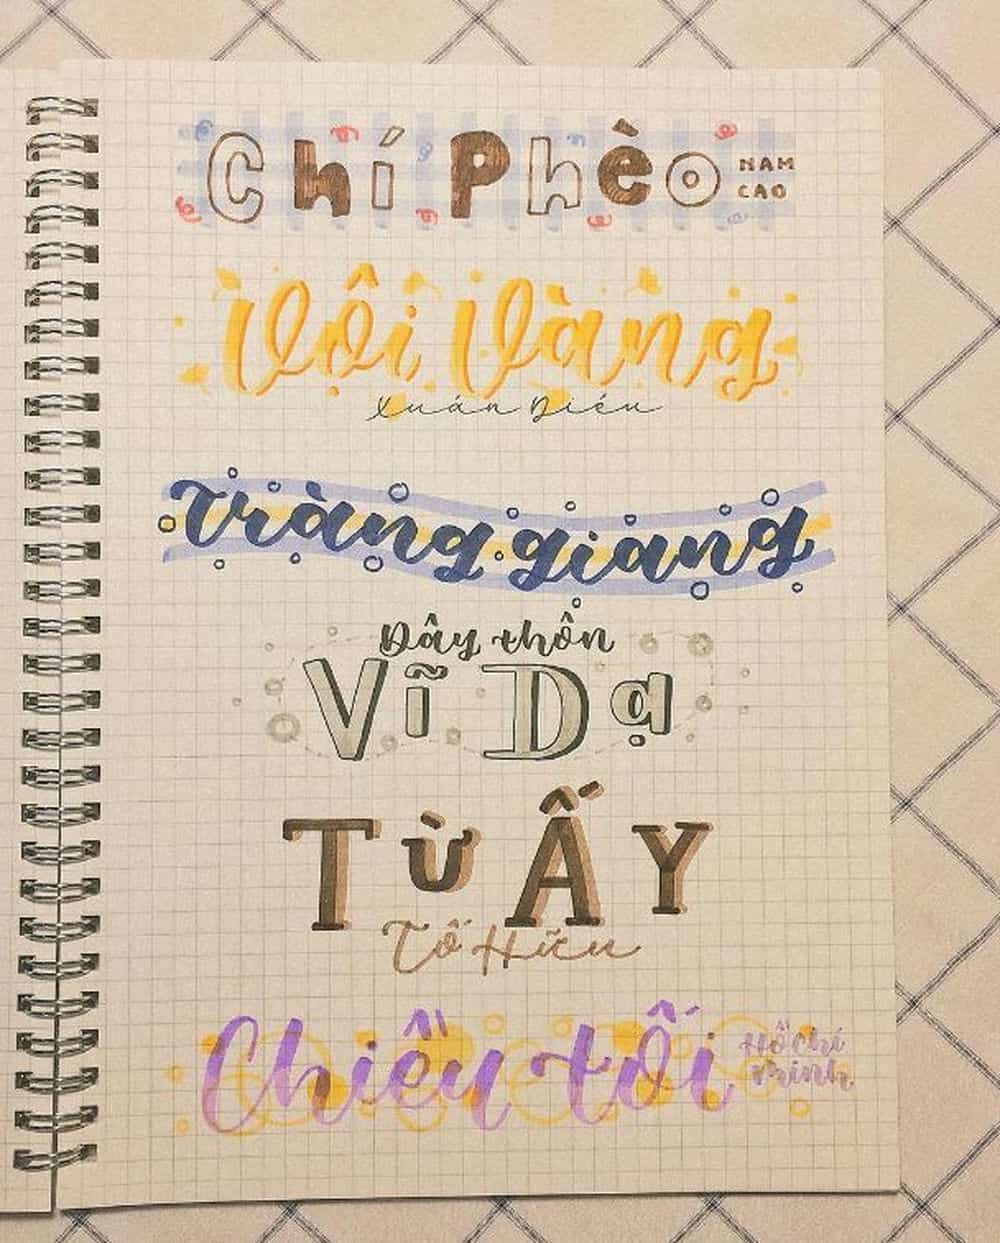 Chí Phèo NAM
CAO
Vội Vàng
Xuân Diệu
tràng giang
Dây thôn
Vĩ Dạ
TỪ ẤY
Tố Hữu
Chiều tối Hồ Chí
Minh